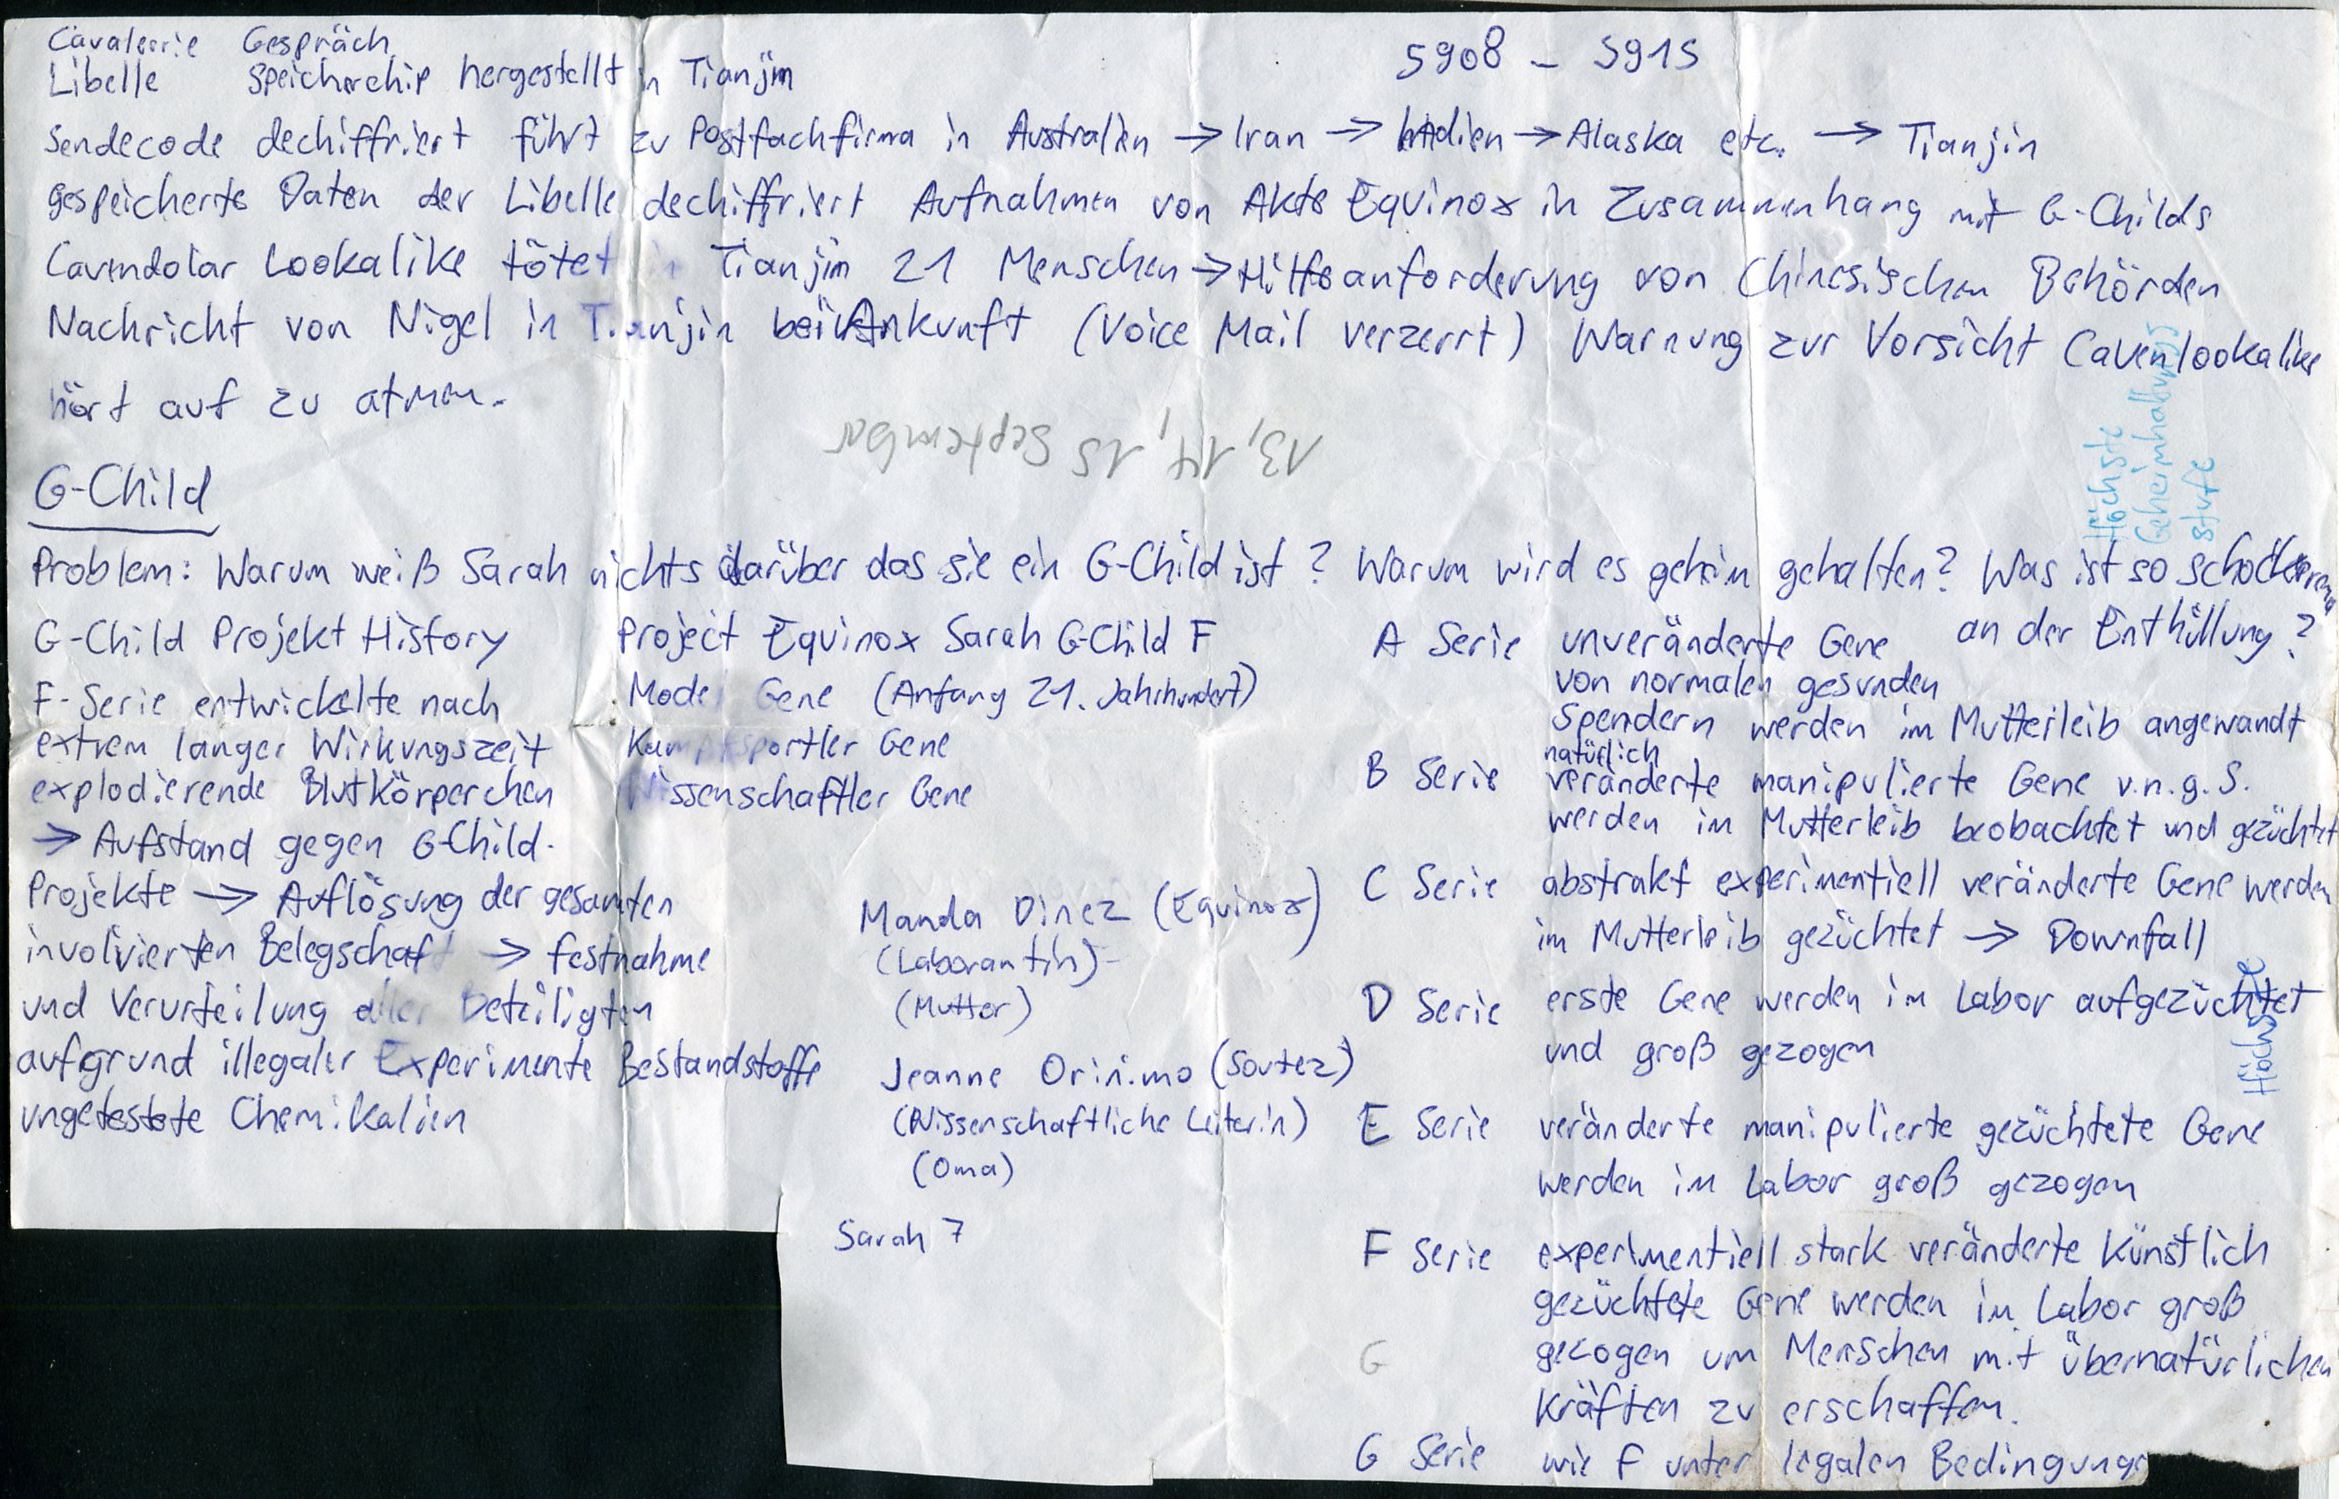 Cavalerrie Gespräch
5908 - 5915
Libelle Speicherchip hergestellt in Tianjin
Sendecode dechiffriert führt zu Postfachfirma in Australien → Iran → Indien → Alaska etc. → Tianjin
gespeicherte Daten der Libelle dechiffriert Aufnahmen von Akte Equinox in Zusammenhang mit G-Childs
Cavendolar Lookalike tötet in Tianjin 21 Menschen → Hilfeanforderung von Chinesischen Behörden
Nachricht von Nigel in Tianjin bei Ankunft (Voice Mail verzerrt) Warnung zur Vorsicht Cavenlookalike
hört auf zu atmen.
13, 14, 15 September
Höchste
Geheimhaltungs
stufe
G-Child
Problem: Warum weiß Sarah nichts darüber das sie ein G-Child ist? Warum wird es geheim gehalten? Was ist so schockierend
an der Enthüllung?
G-Child Projekt History
F-Serie entwickelte nach
extrem langer Wirkungszeit
explodierende Blutkörperchen
→ Aufstand gegen G-Child-
Projekte → Auflösung der gesamten
involvierten Belegschaft → festnahme
und Verurteilung aller Beteiligten
aufgrund illegaler Experimente Bestandstoffe
ungetestete Chemikalien
Project Equinox Sarah G-Child F
Model Gene (Anfang 21. Jahrhundert)
Kampfsportler Gene
Wissenschaftler Gene
Manda Dinez (Equinox)
(Laborantin)
(Mutter)
Jeanne Orinimo (Soutez)
(Wissenschaftliche Leiterin)
(Oma)
Sarah 7
A Serie unveränderte Gene
von normalen gesunden
Spendern werden im Mutterleib angewandt
natürlich
B Serie veränderte manipulierte Gene v.n.g.S.
werden im Mutterleib beobachtet und gezüchtet
C Serie abstrakt experimentiell veränderte Gene werden
im Mutterleib gezüchtet → Downfall
D Serie erste Gene werden im Labor aufgezüchtet
und groß gezogen
Höchste
E Serie veränderte manipulierte gezüchtete Gene
werden im Labor groß gezogen
F Serie experimentiell stark veränderte künstlich
gezüchtete Gene werden im Labor groß
G gezogen um Menschen mit übernatürlichen
Kräften zu erschaffen.
G Serie wie F unter legalen Bedingunge